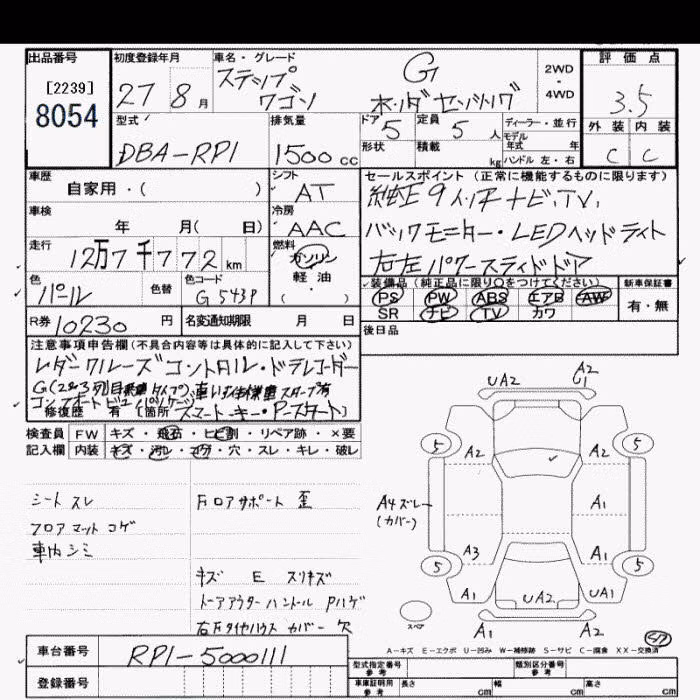 出品番号
[2239]
8054
初度登録年月
27 8 月
車名・グレード
ステップ
ワゴン
G
ホンダ センシング
2WD
・
4WD
評 価 点
3.5
外 装 内 装
C C
型式
DBA-RP1
排気量
1500 cc
ドア 5
定員 5 人
ディーラー・並行
モデル
年式 年
形状
積載 kg
ハンドル 左・右
車歴
自家用・( )
シフト
AT
セールスポイント (正常に機能するものに限ります)
純正9インチナビ.TV.
バックモニター・LEDヘッドライト
右左パワースライドドア
車検
年 月( 日)
冷房
AAC
走行
12万7千772 km
燃料
ガソリン
軽・油
( )
色
パール
色替
色コード
G 543P
装備品(純正品に限り○をつけてください)
PS PW ABS エアB AW
SR ナビ TV カワ
新車保証書
有・無
R券 10230 円
名変通知期限 月 日
後日品
注意事項申告欄(不具合内容等は具体的に記入して下さい)
レダークルーズコントロル・ドラレコーダー
修復歴 有 [箇所 スマートキー・Pスタート]
検査員 FW キズ・飛石・ヒビ割・リペア跡・×要
記入欄 内装 キズ・汚レ・コゲ・穴・スレ・キレ・破レ
シート スレ
フロアマット コゲ
車内シミ
Fロアサポート 歪
キズ E スリキズ
トーアウターハントル Pハゲ
右Fタイヤハウス カバー 欠
UA2 A2
G1
5 A2 A2 5
A4ズレー
(カバー)
A1
A3 A1
5 5
A1 UA2 UA1
スペア
A1 A2
A-キズ E-エクボ U-凹み W-補修跡 S-サビ C-腐食 XX-交換済
車台番号 RP1-5000111
登録番号
型式指定番号
参考
類別区分番号
参考
車庫証明用
参考
長さ cm 幅 cm 高さ cm